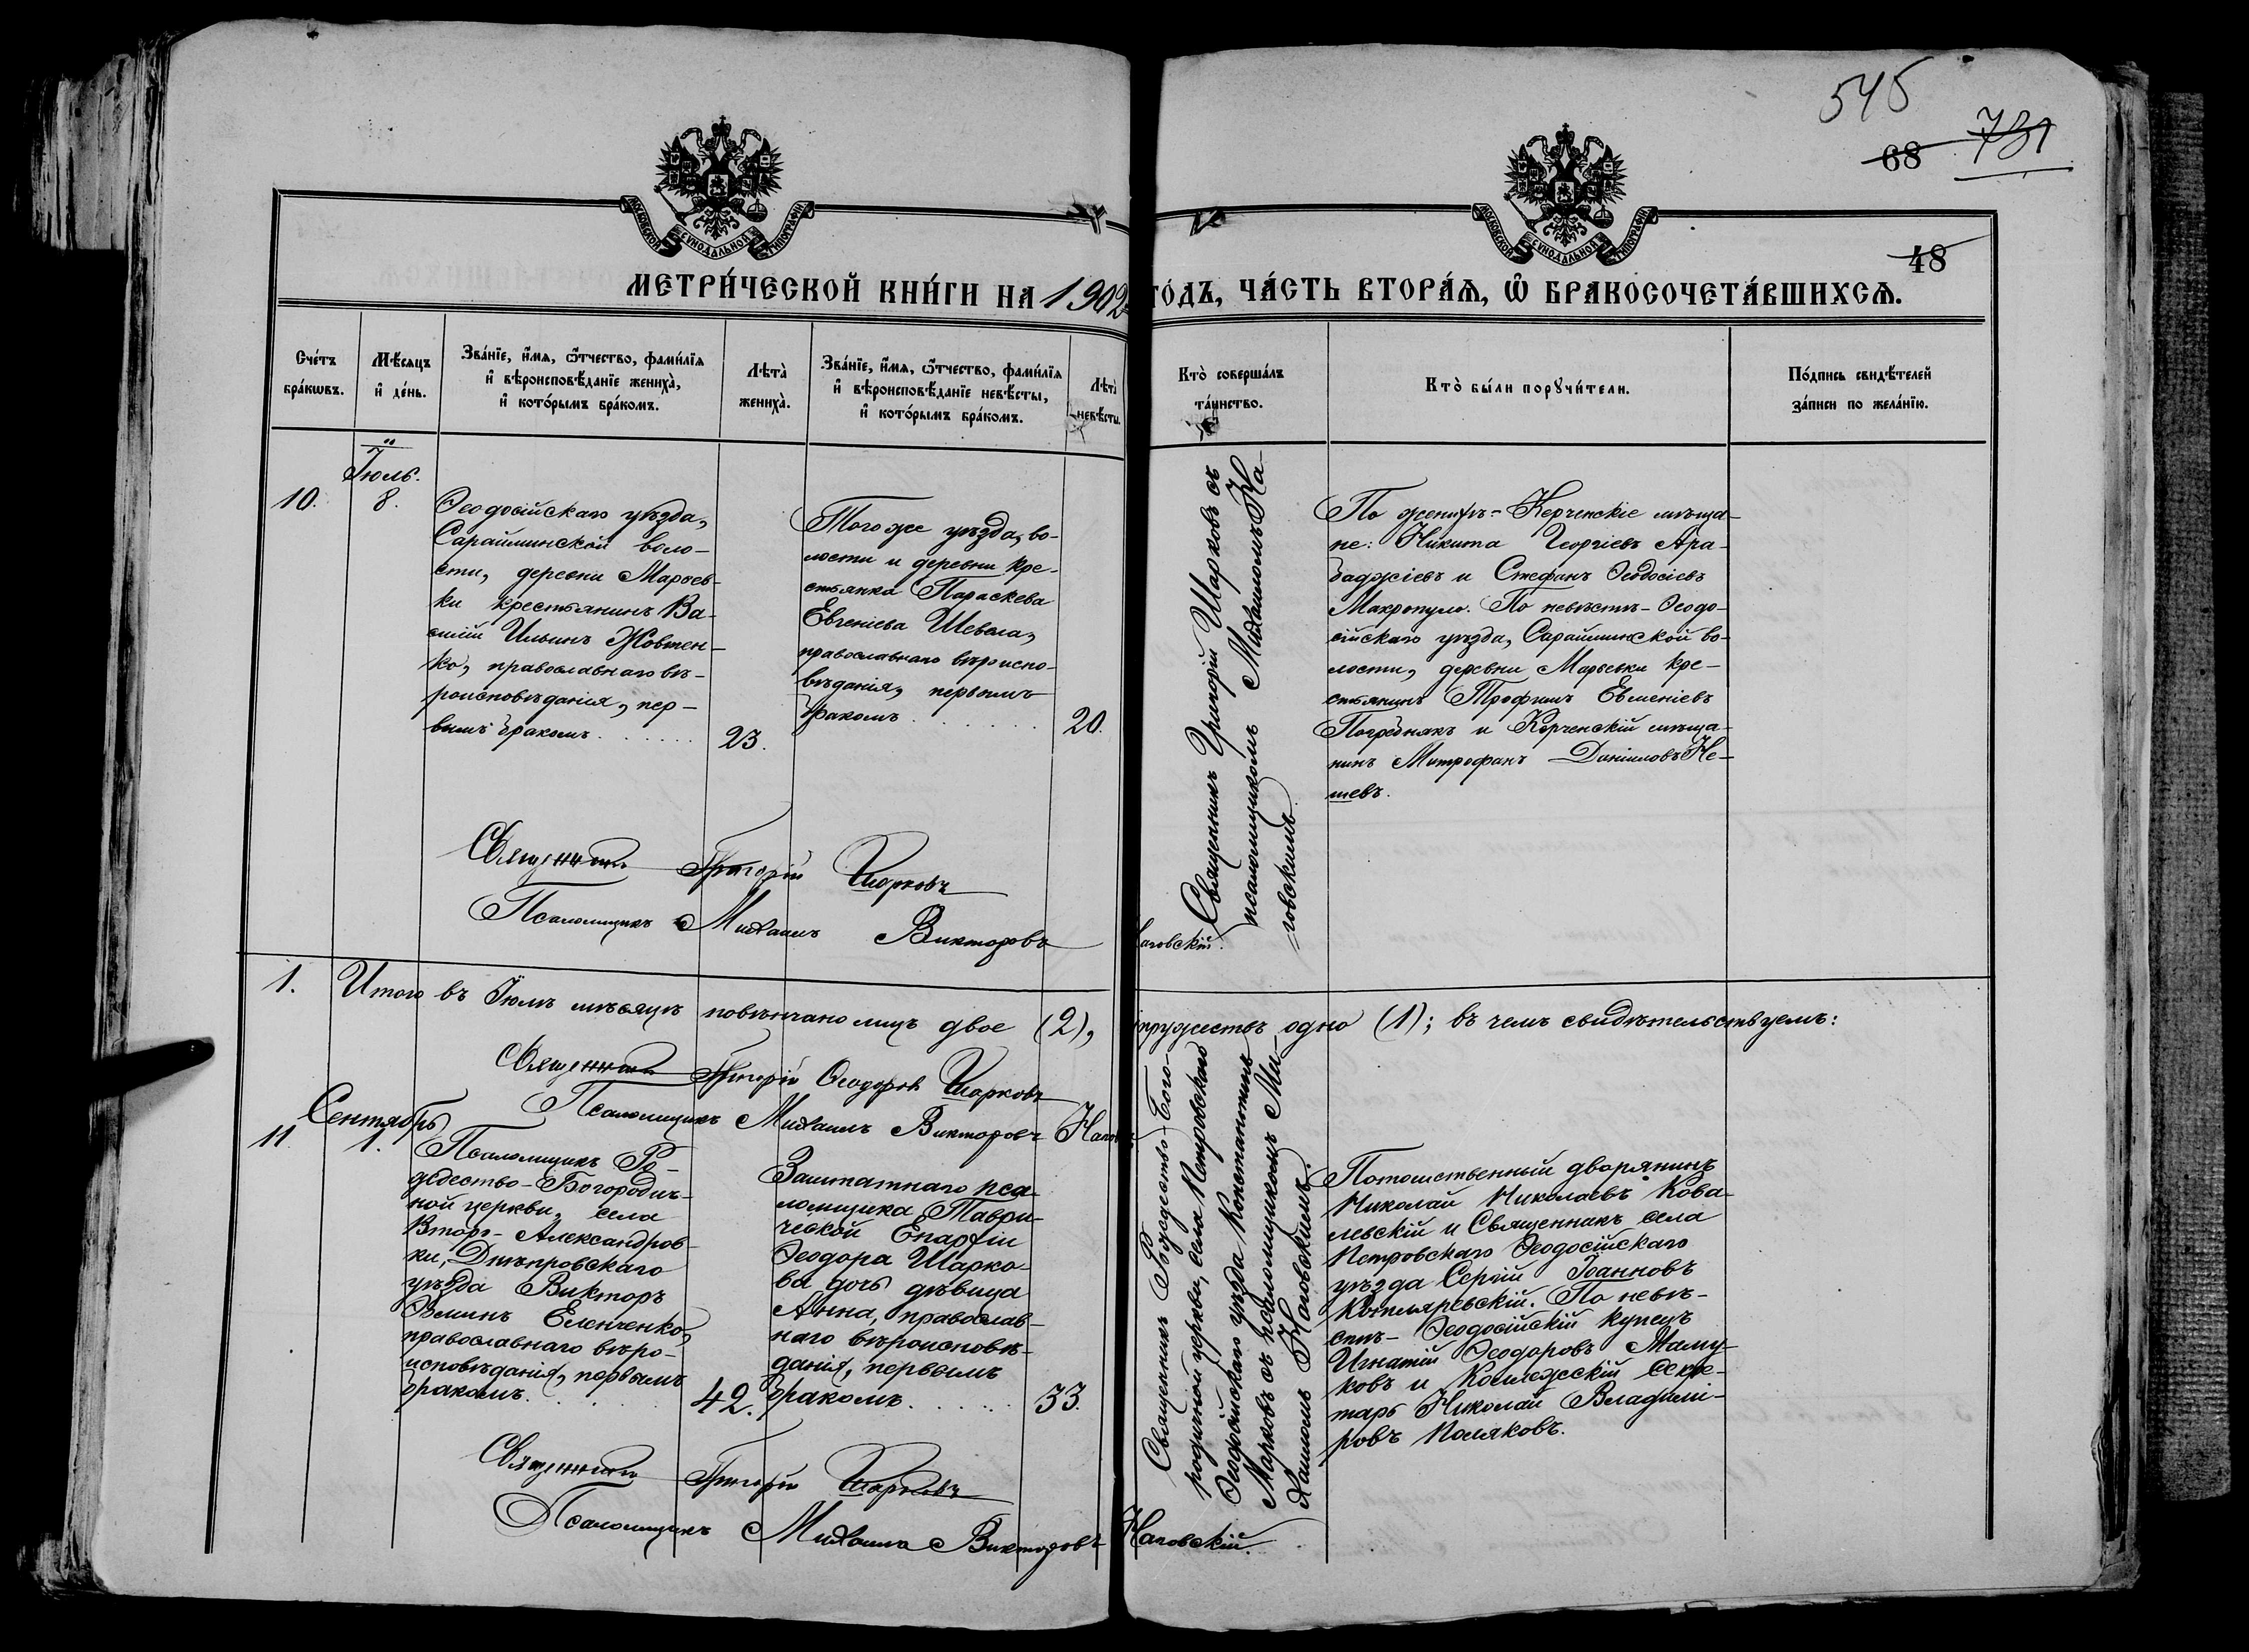 545
68 731
48
МОСКОВСКОЙ СѴНОДАЛЬНОЙ ТИПОГРАФІИ
МОСКОВСКОЙ СѴНОДАЛЬНОЙ ТИПОГРАФІИ
МЕТРИ́ЧЕСКОЙ КНИ́ГИ НА 1902 ГО́ДЪ, ЧА́СТЬ ВТОРА́Ѧ, Ѡ҆ БРАКОСОЧЕТА́ВШИХСѦ.
Сче́тъ
бра́кѡвъ.
Мѣ́сяцъ
и҆ де́нь.
Зва́нїе, и҆́мѧ, ѻ҆́тчество, фами́лїѧ
и҆ вѣроисповѣ́данїе жениха̀,
и҆ кото́рымъ бра́комъ.
Лѣта̀
жениха̀.
Зва́нїе, и҆́мѧ, ѻ҆́тчество, фами́лїѧ
и҆ вѣроисповѣ́данїе невѣ́сты,
и҆ кото́рымъ бра́комъ.
Лѣта̀
невѣ́сты.
Кто̀ соверша́лъ
та́инство.
Кто̀ бы́ли порꙋчи́тели.
По́дпись свидѣ́телей
за́писи по жела́нїю.
Іюль.
10.
8.
Ѳеодосійскаго уѣзда,
Сарайминской воло-
сти, деревни Марьев-
ки крестьянинъ Ва-
силій Ильинъ Жовтен-
ко, православнаго вѣ-
роисповѣданія, пер-
вымъ бракомъ
23.
Того же уѣзда, во-
лости и деревни кре-
стьянка Параскева
Евгеніева Шевела,
православнаго вѣриспо-
вѣданія, первымъ
бракомъ
20.
Священникъ Григорій Шарковъ съ
псаломщикомъ Михаиломъ На-
говскимъ.
По женихѣ - Керченскіе мѣща-
не: Никита Георгіевъ Ара-
баджіевъ и Стефанъ Ѳеодосіевъ
Макропуло. По невѣстѣ - Ѳеодо-
сійскаго уѣзда, Сарайминской во-
лости, деревни Марьевки кре-
стьянинъ Трофимъ Евменіевъ
Погребнякъ и Керченскій мѣща-
нинъ Митрофанъ Даніиловъ Не-
шевъ.
Священникъ Григорій Шарковъ
Псаломщикъ Михаилъ Викторовъ Наговскій.
1. Итого въ Іюлѣ мѣсяцѣ повѣнчано лицъ двое (2), супружествъ одно (1); въ чемъ свидѣтельствуемъ:
Священникъ Григорій Ѳеодоровъ Шарковъ
Псаломщикъ Михаилъ Викторовъ Наговскій
Сентябрь
11
1.
Псаломщикъ Ро-
ждество-Богородич-
ной церкви, села
Второ-Александров-
ки, Днѣпровскаго
уѣзда Викторъ
Еленченко,
православнаго вѣро-
исповѣданія, первымъ
бракомъ.
42.
Заштатнаго пса-
ломщика Таври-
ческой Епархіи
Ѳеодора Шарко-
ва дочь дѣвица
Анна, православ-
наго вѣроисповѣ-
данія, первымъ
бракомъ
33.
Священникъ Рождество-Бого-
родичной церкви, села Петровскаго
Ѳеодосійскаго уѣзда Константинъ
Марковъ съ псаломщикомъ Ми-
хаиломъ Наговскимъ.
Потомственный дворянинъ
Николай Николаевъ Кова-
левскій и Священникъ села
Петровскаго Ѳеодосійскаго
уѣзда Сергій Іоанновъ
Котляревскій. По невѣ-
стѣ - Ѳеодосійскій купецъ
Игнатій Ѳеодоровъ Маму-
ковъ и Коллежскій Секре-
тарь Николай Владимі-
ровъ Поляковъ.
Священникъ Григорій Шарковъ
Псаломщикъ Михаилъ Викторовъ Наговскій.